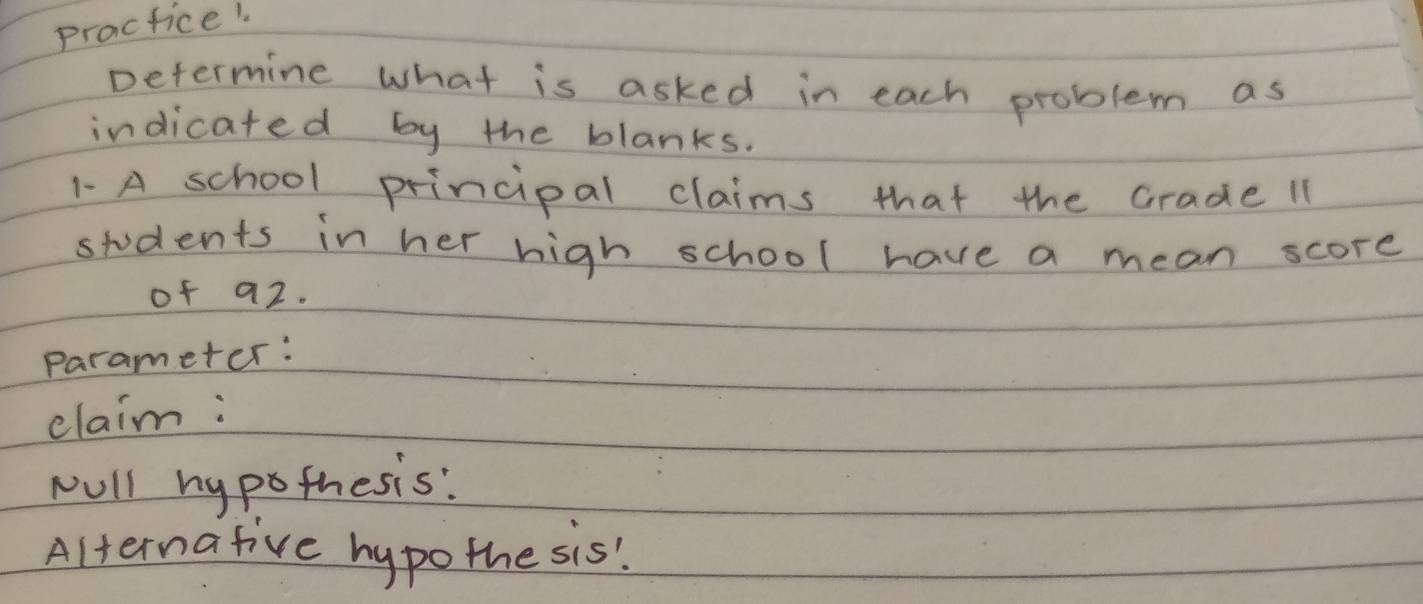 Practice!
Determine what is asked in each problem as
indicated by the blanks.
1- A school principal claims that the Grade 11
students in her high school have a mean score
of 92.
Parameter:
claim:
Null hypothesis:
Alternative hypothesis: